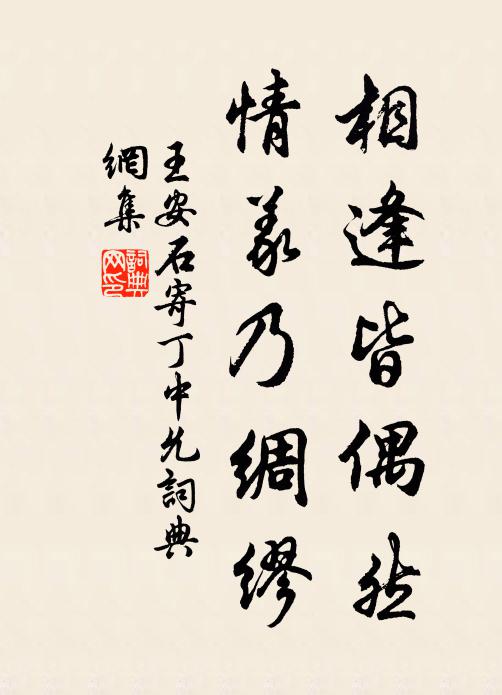 相逢皆偶然
情義乃綢繆
王安石寄丁中允詞典
網集
詞典
网印